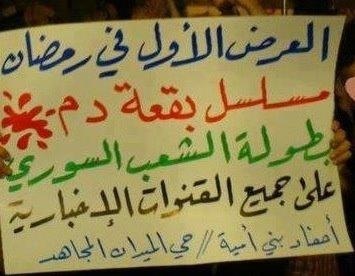 العرض الأول في رمضان
مسلسل بقعة دم
بطولة الشعب السوري
على جميع القنوات الإخبارية
أحفاد بني أمية // حي الميدان المجاهد